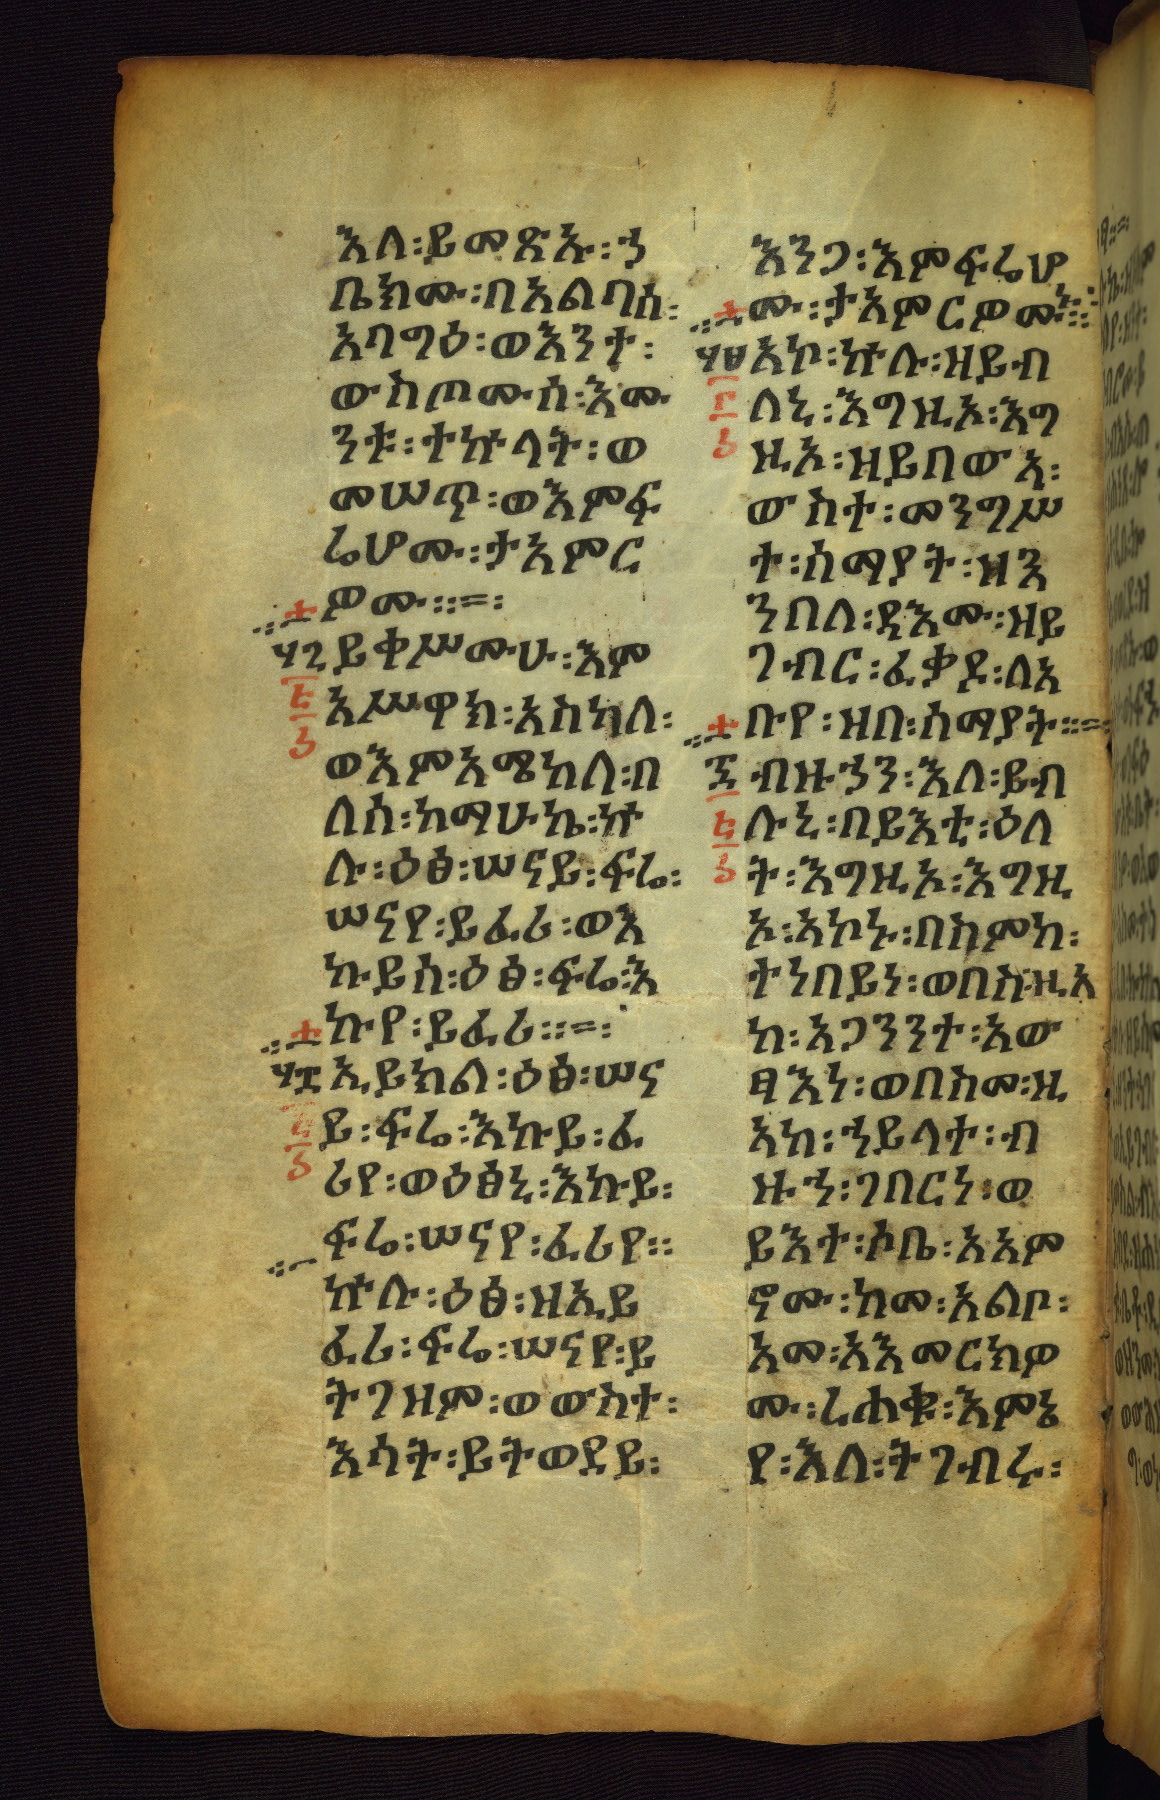 እለ፡ይመጽኡ፡ኀ
ቤክሙ፡በአልባሰ፡
አባግዕ፡ወእንተ፡
ውስጦሙሰ፡እሙ
ንቱ፡ተኵላት፡ወ
መሠጥ፡ወእምፍ
ሬሆሙ፡ታአምር
ዎሙ።=፡
፸፯ ይቀሥሙሁ፡እም
አሥዋክ፡አስካለ፡
ወእምአሜከላ፡በ
ለሰ፡ከማሁኬ፡ኵ
ሉ፡ዕፅ፡ሠናይ፡ፍሬ፡
ሠናየ፡ይፈሪ፡ወእ
ኩይሰ፡ዕፅ፡ፍሬ፡እ
ኩየ፡ይፈሪ።=፡
፸፰ ኢይክል፡ዕፅ፡ሠና
ይ፡ፍሬ፡እኩይ፡ፈ
ሪየ፡ወዕፅኒ፡እኩይ፡
ፍሬ፡ሠናየ፡ፈሪየ፡፡
ኵሉ፡ዕፅ፡ዘኢይ
ፈሪ፡ፍሬ፡ሠናየ፡ይ
ትገዘም፡ወውስተ፡
እሳት፡ይትወደይ፡
እንጋ፡እምፍሬሆ
ሙ፡ታአምርዎሙ፡፡
፸፱ አኮ፡ኵሉ፡ዘይብ
ለኒ፡እግዚኦ፡እግ
ዚኦ፡ዘይበውእ፡
ውስተ፡መንግሥ
ተ፡ሰማያት፡ዘእ
ንበለ፡ዳእሙ፡ዘይ
ገብር፡ፈቃደ፡ለአ
ቡየ፡ዘበ፡ሰማያት።=
፷ ብዙኃን፡እለ፡ይብ
ሉኒ፡በይእቲ፡ዕለ
ት፡እግዚኦ፡እግዚ
ኦ፡አኮኑ፡በስምከ፡
ተነበይነ፡ወበስ፡ዚአ
ከ፡አጋንንተ፡አው
ፃእነ፡ወበስመ፡ዚ
አከ፡ኀይላተ፡ብ
ዙኀ፡ገበርነ፡ወ
ይእተ፡ሶቤ፡አአም
ኖሙ፡ከመ፡አልቦ፡
አመ፡አእመርክዎ
ሙ፡ረሐቁ፡እምኔ
የ፡እለ፡ትገብሩ፡